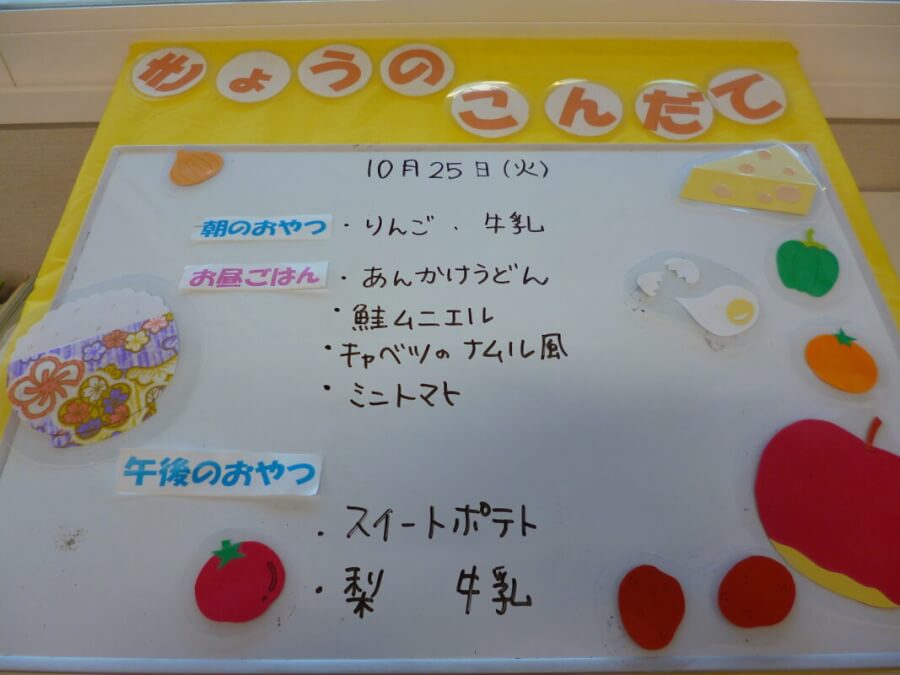 きょうの
こんだて
10月25日(火)
朝のおやつ ・りんご ・ 牛乳
お昼ごはん ・あんかけうどん
・鮭ムニエル
・キャベツのナムル風
・ミニトマト
午後のおやつ
・スイートポテト
・梨 牛乳